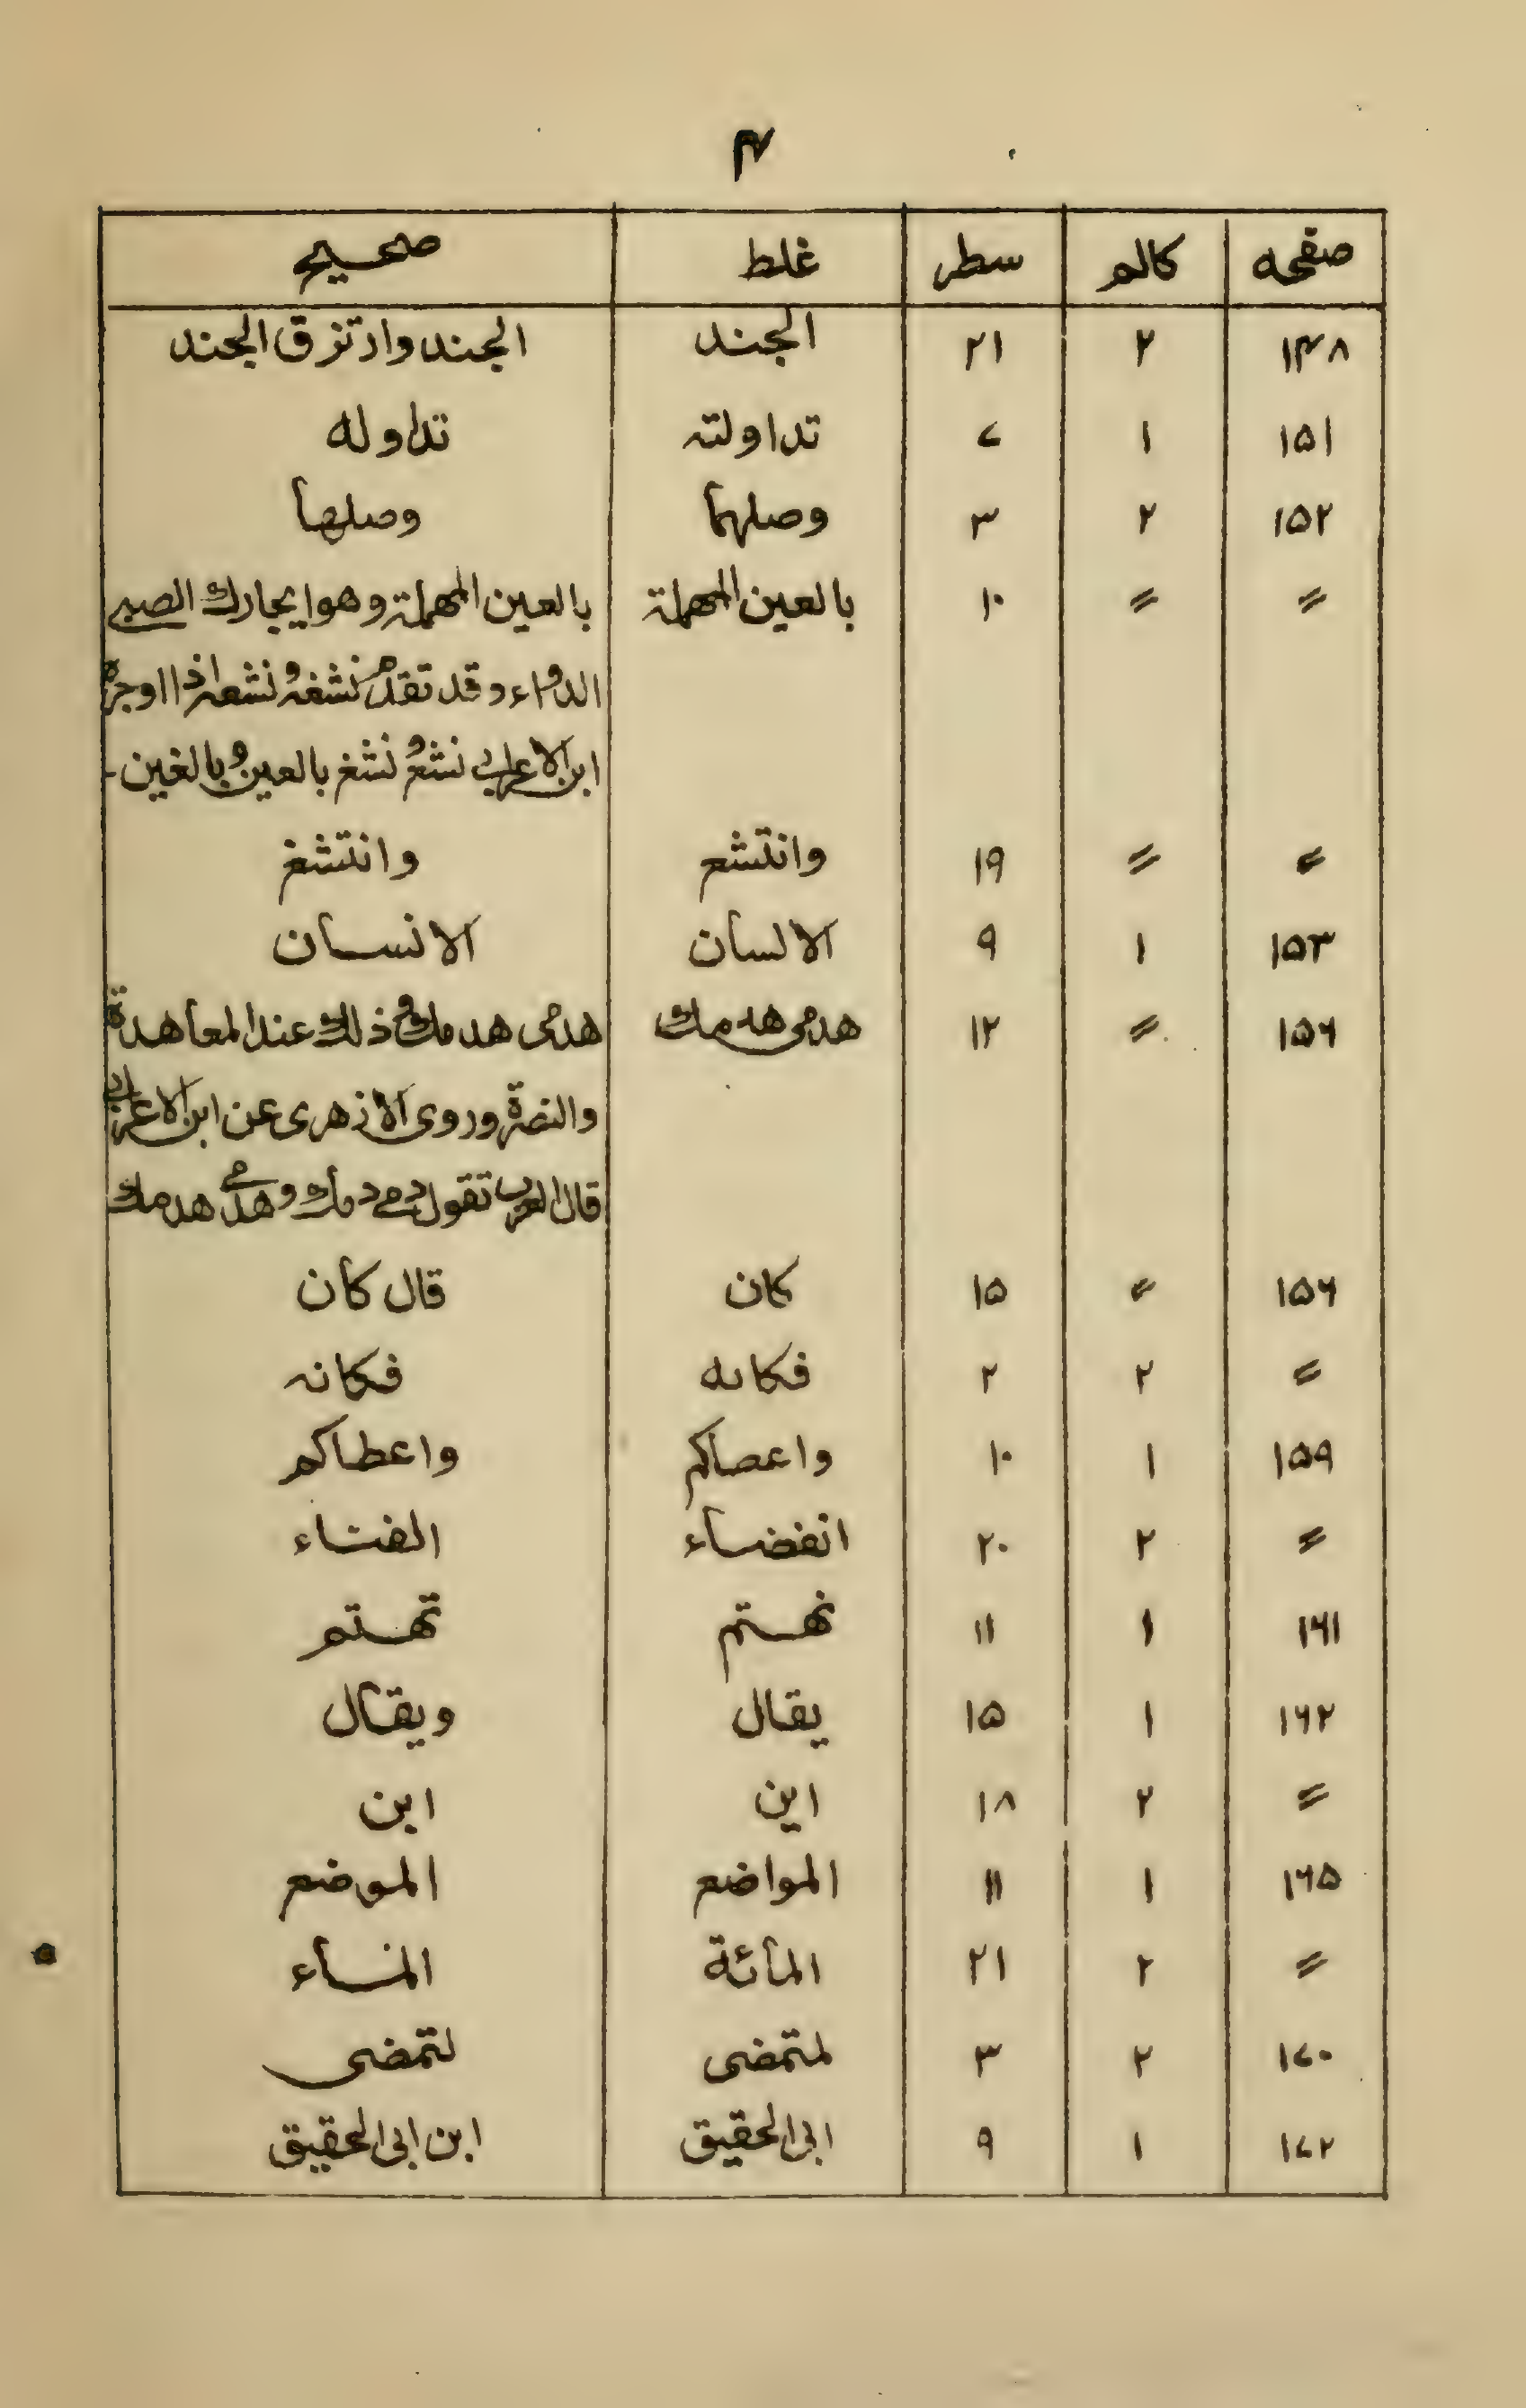 ۴
صفحه کالم سطر غلط صحيح
۱۴۸ ۲ ۲۱ الجند الجند وارتزق الجند
۱۵۱ ۱ ۷ تداولته تداوله
۱۵۲ ۲ ۳ وصلهما وصلها
〃 〃 ۱۰ بالعين المهملة بالعين المهملة وهو ايجارك الصبى
الدواء وقد تقدم نشغه ونشعه اذا اوجره
ابن الاعرابى نشع ونشغ بالعين وبالغين -
〃 〃 ۱۹ وانتشع وانتشغ
۱۵۳ ۱ ۹ الالسان الانسان
۱۵۶ 〃 ۱۲ هدمى هدمك هدمى هدمك وذلك عند المعاهدة
والنصرة وروى الازهرى عن ابن الاعرابى
قال العرب تقول دمى دمك وهدمى هدمك
۱۵۶ 〃 ۱۵ كان قال كان
〃 ۲ ۲ فكانه فكانه
۱۵۹ ۱ ۱۰ واعصاكم واعطاكم
〃 ۲ ۲۰ انفضاء الفضاء
۱۶۱ ۱ ۱۱ نهستم تهستم
۱۶۲ ۱ ۱۵ يقال ويقال
〃 ۲ ۱۸ اين ابن
۱۶۵ ۱ ۱۱ المواضع الموضع
〃 ۲ ۲۱ المأئة المساء
۱۷۰ ۲ ۳ لمتمضى لتمضى
۱۷۲ ۱ ۹ ابى الحقيق ابن ابى الحقيق